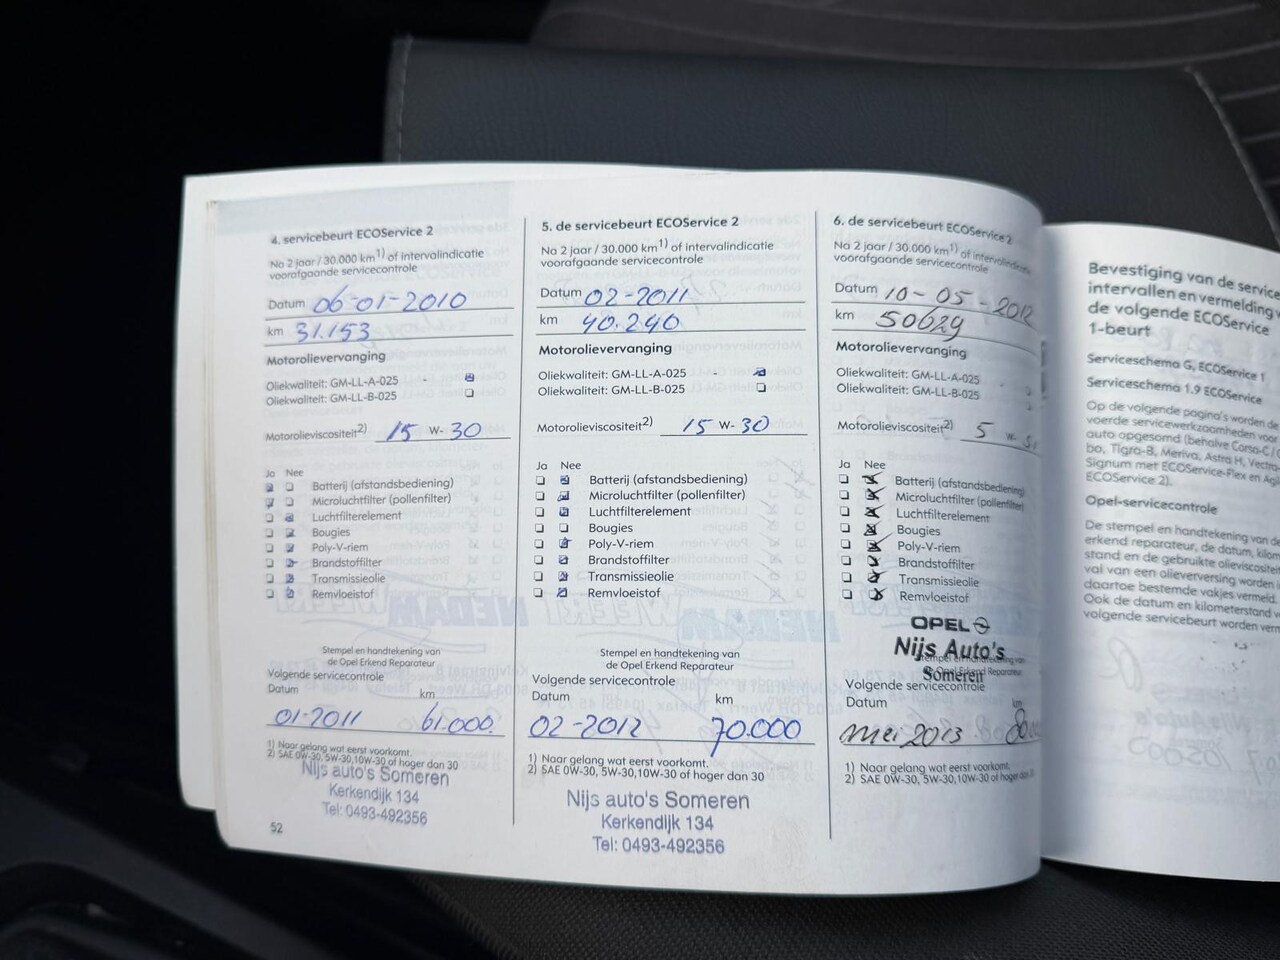 4. servicebeurt ECOService 2
Na 2 jaar / 30.000 km1) of intervalindicatie
voorafgaande servicecontrole
Datum 06-01-2010
km 31.153
Motorolievervanging
Oliekwaliteit: GM-LL-A-025 -
Oliekwaliteit: GM-LL-B-025
Motorolieviscositeit2) 15 W- 30
Ja Nee
Batterij (afstandsbediening)
Microluchtfilter (pollenfilter)
Luchtfilterelement
Bougies
Poly-V-riem
Brandstoffilter
Transmissieolie
Remvloeistof
Stempel en handtekening van
de Opel Erkend Reparateur
Volgende servicecontrole
Datum km
01-2011 61.000.
1) Naar gelang wat eerst voorkomt.
2) SAE 0W-30, 5W-30,10W-30 of hoger dan 30
Nijs auto's Someren
Kerkendijk 134
Tel: 0493-492356
52
5. de servicebeurt ECOService 2
Na 2 jaar / 30.000 km1) of intervalindicatie
voorafgaande servicecontrole
Datum 02-2011
km 40.240
Motorolievervanging
Oliekwaliteit: GM-LL-A-025 -
Oliekwaliteit: GM-LL-B-025
Motorolieviscositeit2) 15 W- 30
Ja Nee
Batterij (afstandsbediening)
Microluchtfilter (pollenfilter)
Luchtfilterelement
Bougies
Poly-V-riem
Brandstoffilter
Transmissieolie
Remvloeistof
Stempel en handtekening van
de Opel Erkend Reparateur
Volgende servicecontrole
Datum km
02-2012 70.000
1) Naar gelang wat eerst voorkomt.
2) SAE 0W-30, 5W-30,10W-30 of hoger dan 30
Nijs auto's Someren
Kerkendijk 134
Tel: 0493-492356
6. de servicebeurt ECOService 2
Na 2 jaar / 30.000 km1) of intervalindicatie
voorafgaande servicecontrole
Datum 10-05-2012
km 50629
Motorolievervanging
Oliekwaliteit: GM-LL-A-025
Oliekwaliteit: GM-LL-B-025
Motorolieviscositeit2) 5 W-
Ja Nee
Batterij (afstandsbediening)
Microluchtfilter (pollenfilter)
Luchtfilterelement
Bougies
Poly-V-riem
Brandstoffilter
Transmissieolie
Remvloeistof
OPEL
Nijs Auto's
Stempel en handtekening van
Opel Erkend Reparateur
Someren
Volgende servicecontrole
Datum km
mei 2013
1) Naar gelang wat eerst voorkomt.
2) SAE 0W-30, 5W-30,10W-30 of hoger dan
Bevestiging van de service
intervallen en vermelding
de volgende ECOService
1-beurt
Serviceschema G, ECOService 1
Serviceschema 1.9 ECOService
Op de volgende pagina's worden de
voerde servicewerkzaamheden voor
auto opgesomd (behalve Corsa-C / 
bo, Tigra-B, Meriva, Astra H, Vectra
Signum met ECOService-Flex en
ECOService 2).
Opel-servicecontrole
De stempel en handtekening van
erkend reparateur, de datum,
stand en de gebruikte olieviscositeit
val van een olieverversing worden
daartoe bestemde vakjes vermeld.
Ook de datum en kilometerstand
volgende servicebeurt worden